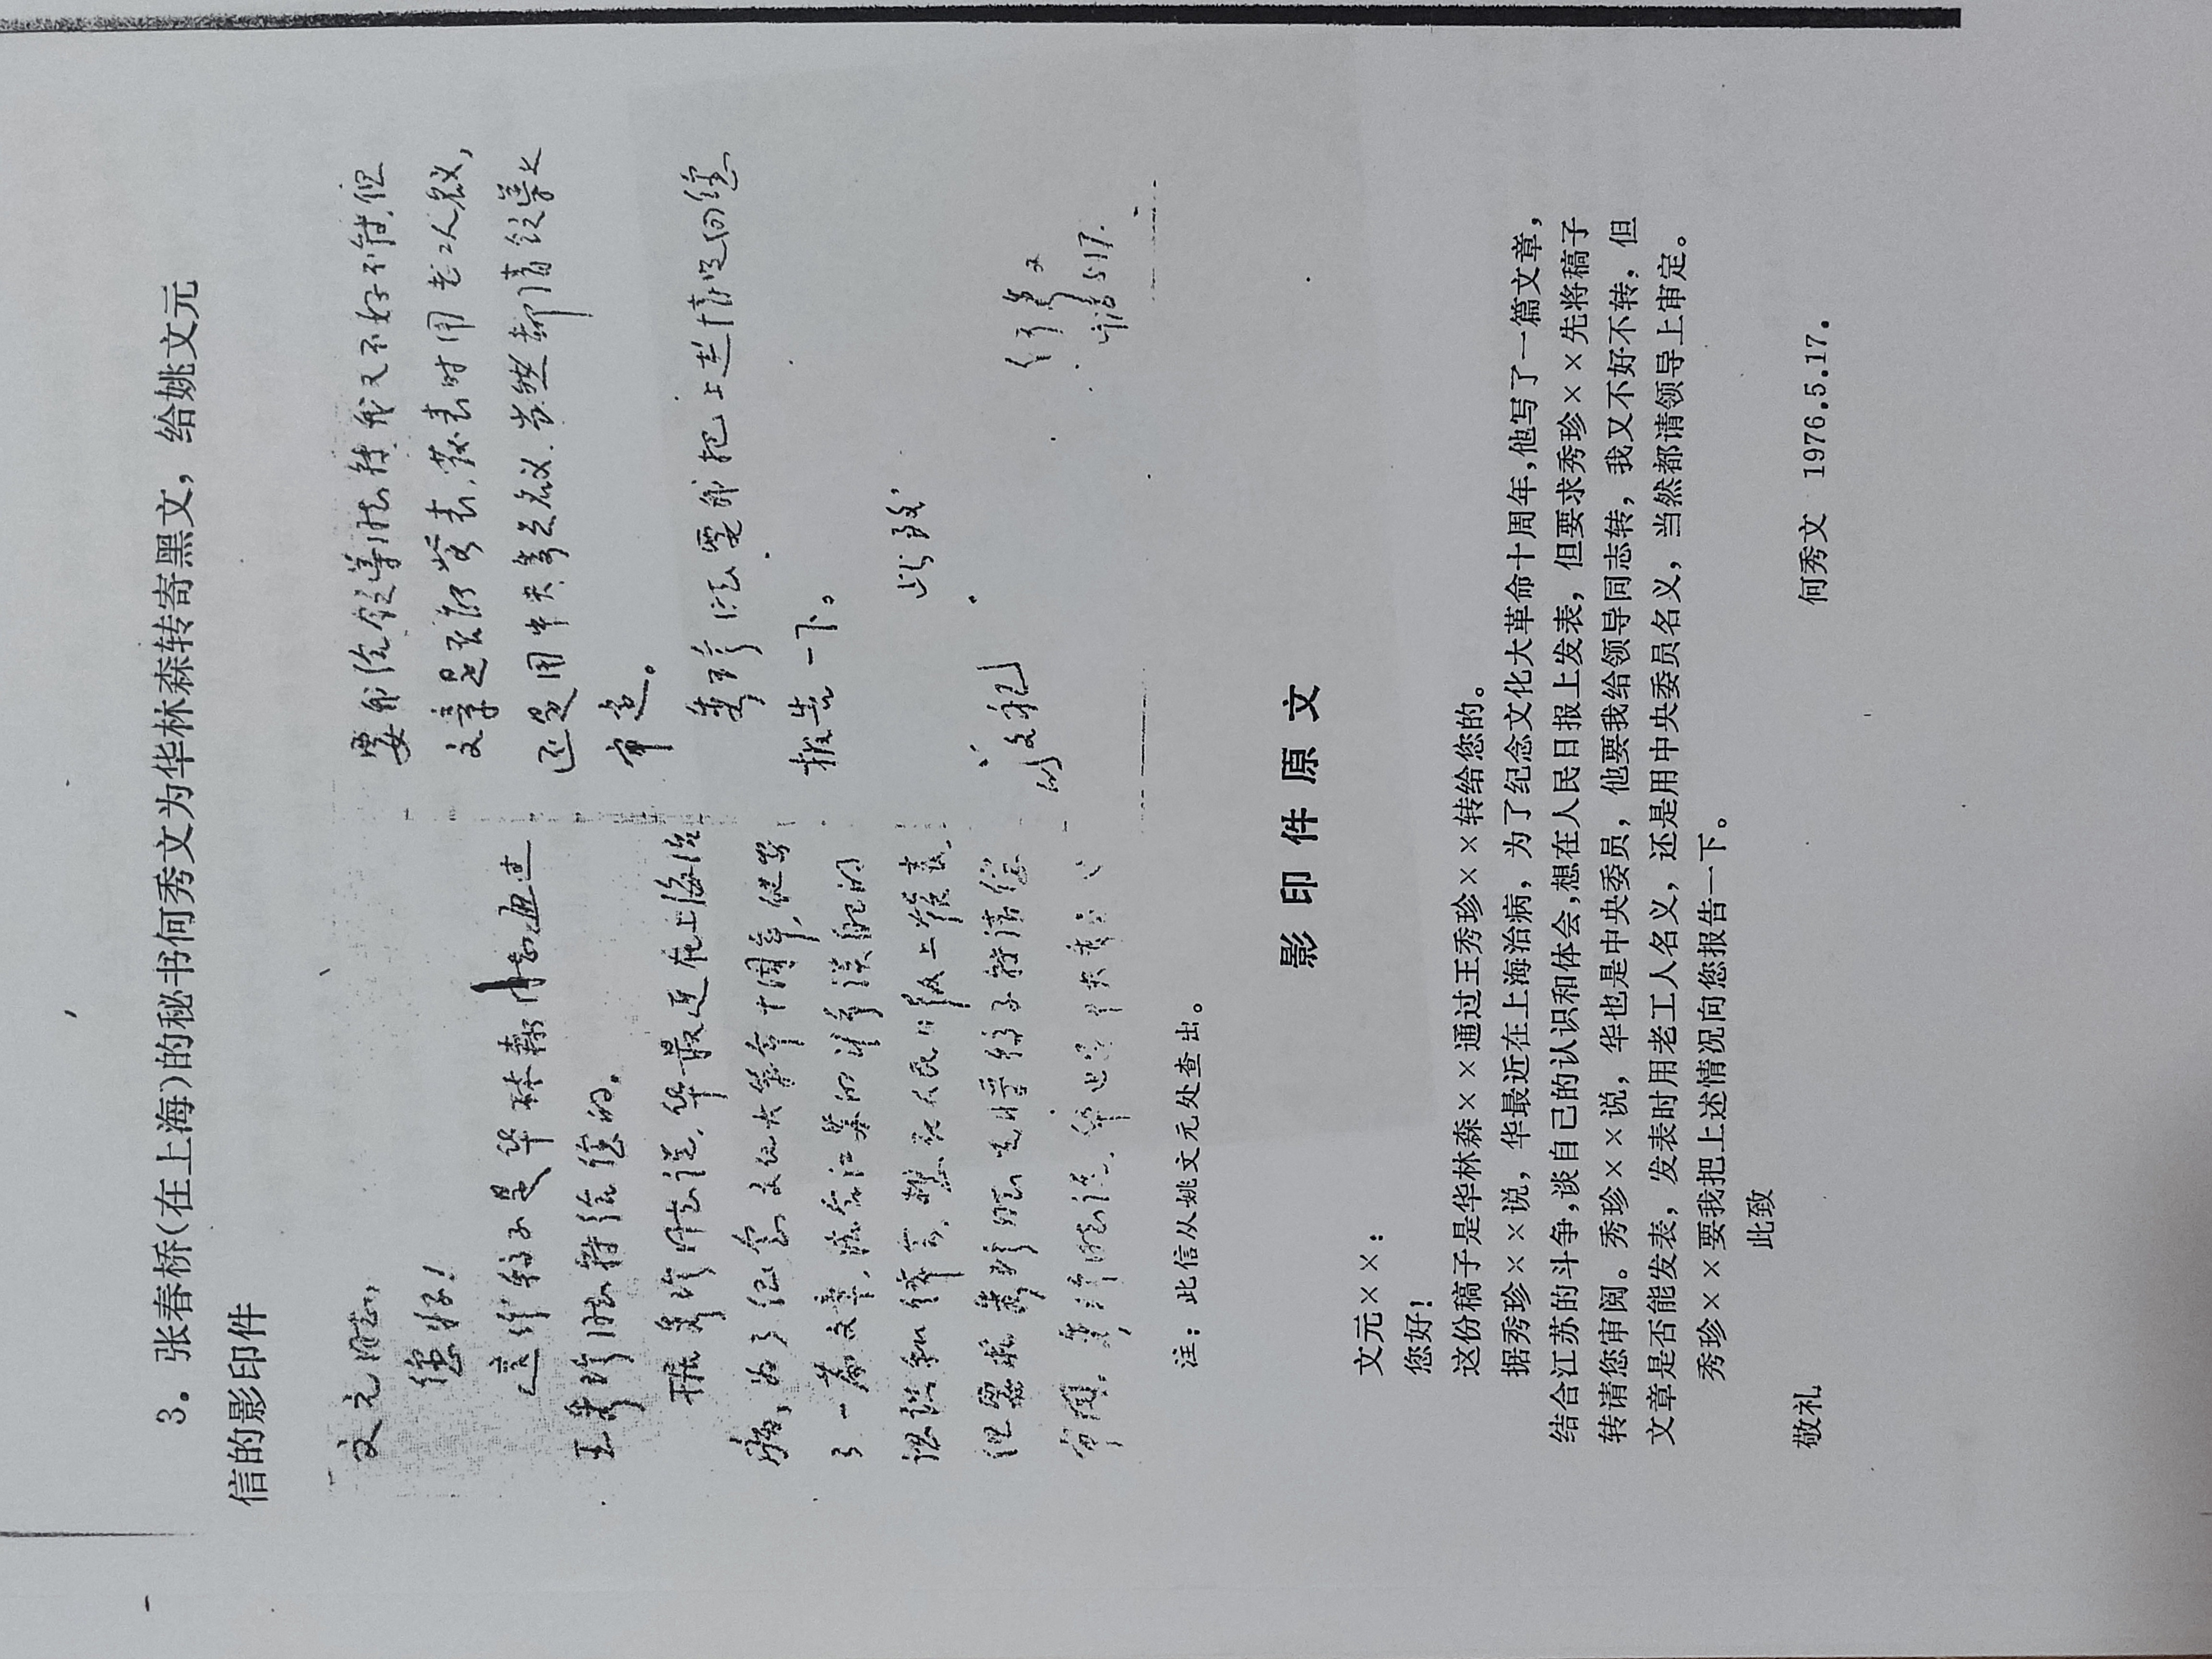 3。张春桥(在上海)的秘书何秀文为华林森转寄黑文，给姚文元
信的影印件
文元同志，
您好！
这份稿子是华林森同志通过
王秀珍同志转给您的。
据秀珍同志说，华最近在上海治
病，为了纪念文化大革命十周年，他写
了一篇文章，结合江苏的斗争谈自己的
认识和体会，想在人民日报上发表，
但要求秀珍同志先将稿子转请您
审阅。秀珍同志说，华也是中央委员
要我给领导同志转，我又不好不转，但
文章是否能发表，发表时用老工人名义，
还是用中央委员名义，当然都请领导上
审定。
秀珍同志要我把上述情况向您
报告一下。
此致
敬礼
何秀文
5.17.
注：此信从姚文元处查出。
影印件原文
文元××：
您好！
这份稿子是华林森××通过王秀珍××转给您的。
据秀珍××说，华最近在上海治病，为了纪念文化大革命十周年，他写了一篇文章，
结合江苏的斗争，谈自己的认识和体会，想在人民日报上发表，但要求秀珍××先将稿子
转请您审阅。秀珍××说，华也是中央委员，他要我给领导同志转，我又不好不转，但
文章是否能发表，发表时用老工人名义，还是用中央委员名义，当然都请领导上审定。
秀珍××要我把上述情况向您报告一下。
此致
敬礼
何秀文 1976.5.17.